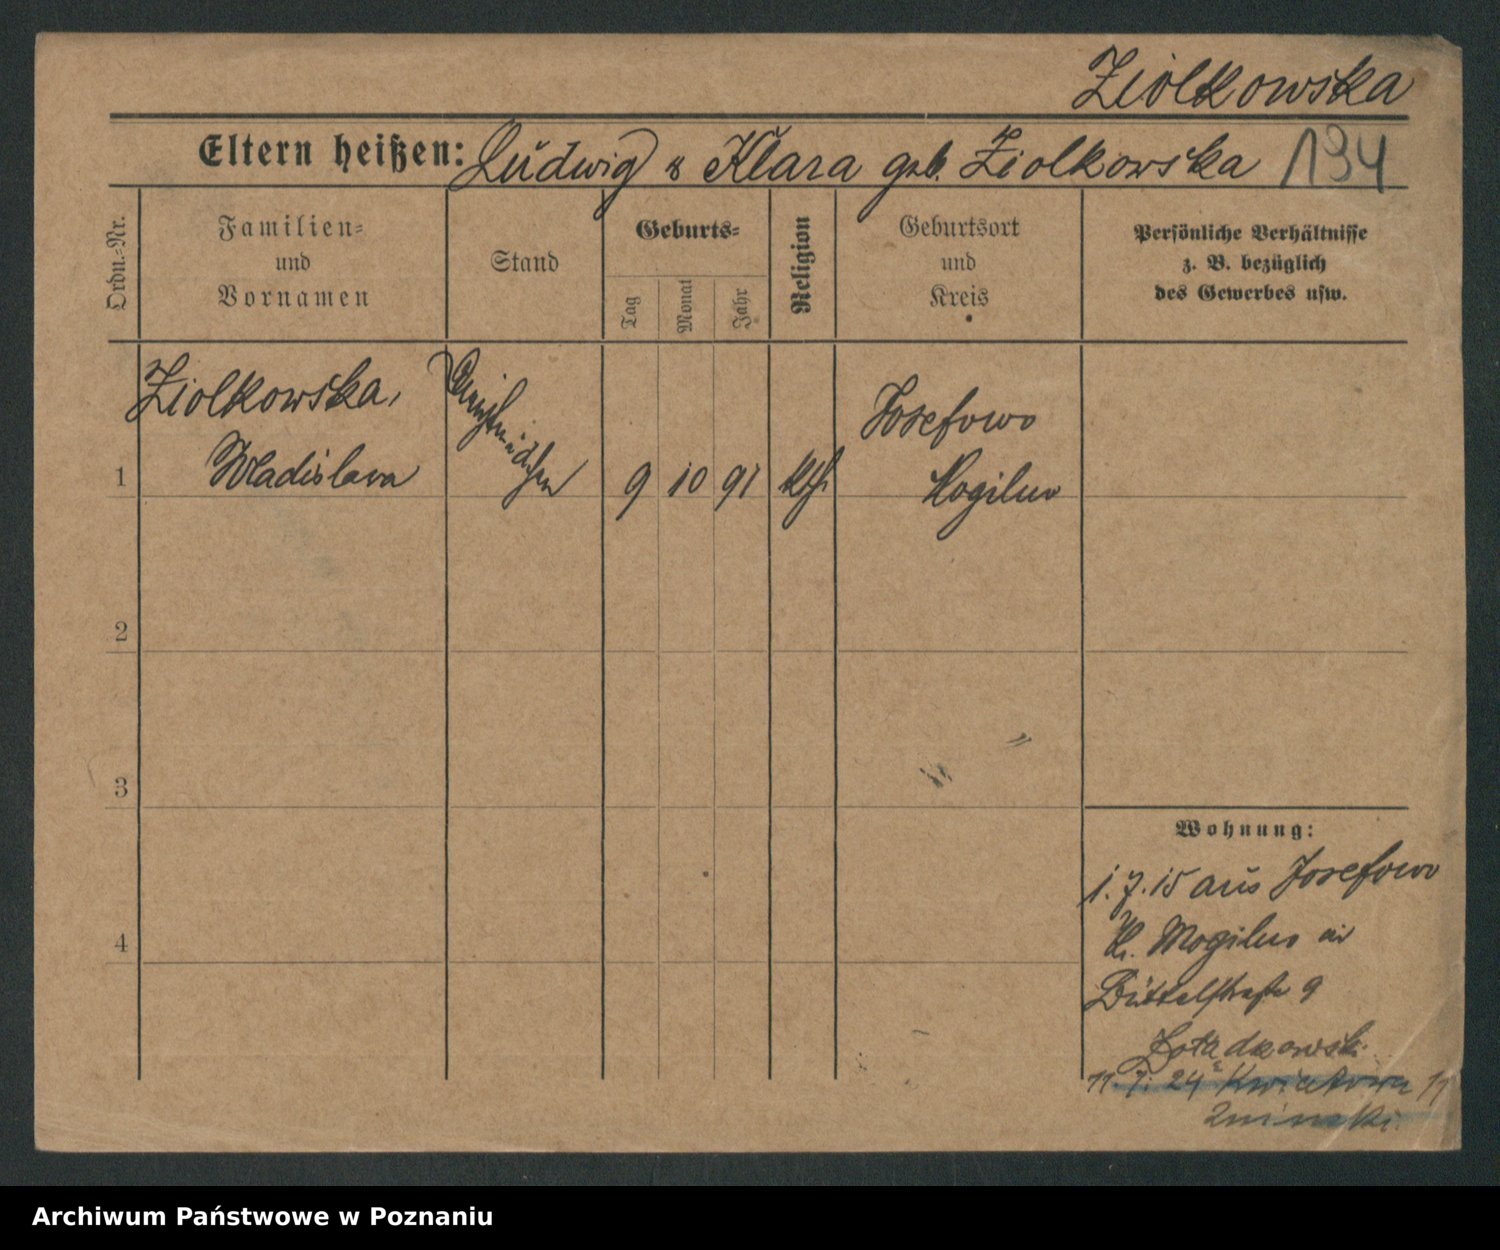 Ziolkowska
Eltern heißen: Ludwig & Klara geb. Ziolkowska 194
Ordn.-Nr.
Familien-
und
Vornamen
Stand
Geburts-
Tag
Monat
Jahr
Religion
Geburtsort
und
Kreis
Persönliche Verhältnisse
z. B. bezüglich
des Gewerbes usw.
Ziolkowska,
Dienstmädchen
Josefowo
1 Wladislava 9 10 91 kth. Mogilno
2
3
4
Wohnung:
1.7.15 aus Josefowo
Kr. Mogilno
Büttelstraße 9
11. 7. 24 Kwiatowa 11
Archiwum Państwowe w Poznaniu